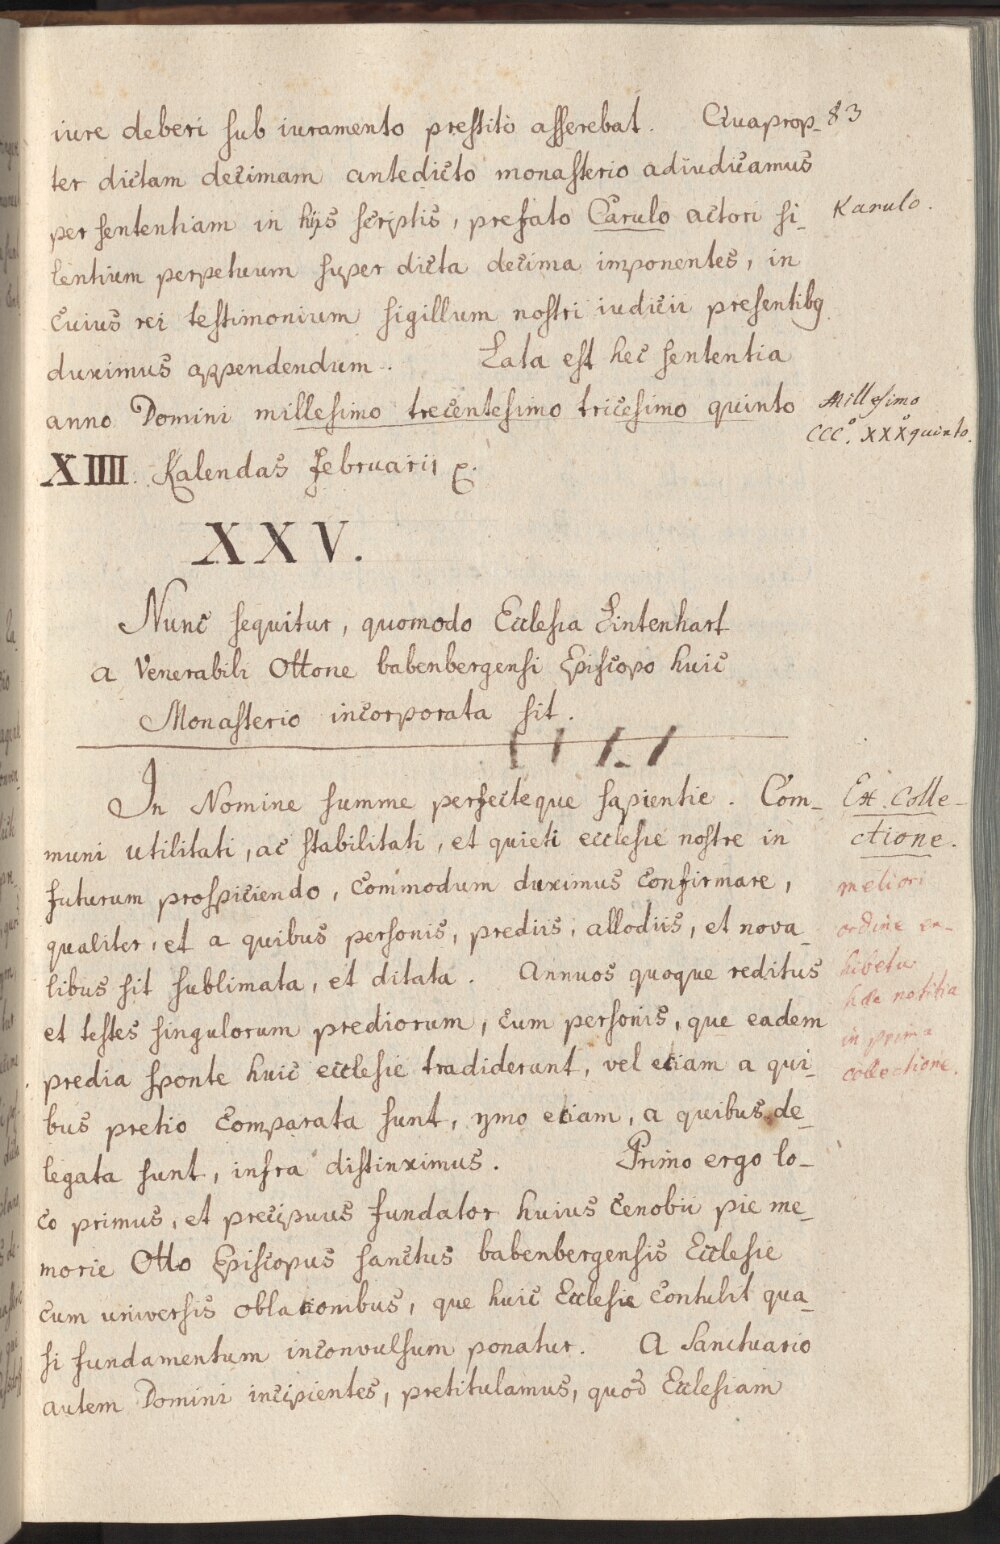 83
iure deberi sub iuramento prestitò asserebat. Quaprop-
ter dictam decimam antedicto monasterio adiudicamus
per sententiam in hijs scriptis, prefato Carulo actori si-
Karulo.
lentium perpetuum super dicta decima imponentes, in
cuius rei testimonium sigillum nostri iudicii presentibg
duximus appendendum. Lata est hec sententia
anno Domini millesimo trecentesimo tricesimo quinto
Millesimo
CCCº. XXXº quinto.
XIIII. Kalendas Februarii
XXV.
Nunc sequitur, quomodo Ecclesia Lintenhart
a Venerabili Ottone babenbergensi Episcopo huic
Monasterio incorporata sit.
In Nomine summe perfecteque sapientie. Com-
muni utilitati, ac stabilitati, et quieti ecclesie nostre in
futurum prospiciendo, commodum duximus confirmare,
qualiter, et a quibus personis, prediis, allodiis, et nova-
libus sit sublimata, et ditata. Annuos quoque reditus
et testes singulorum prediorum, cum personis, que eadem
predia sponte huic ecclesie tradiderunt, vel etiam a qui-
bus pretio comparata sunt, ymo etiam, a quibus de-
legata sunt, infra distinximus. Primo ergo lo-
co primus, et precipuus fundator huius cenobii pie me-
morie Otto Episcopus sanctus babenbergensis Ecclesie
cum universis oblacionibus, que huic Ecclesie contulit qua-
si fundamentum inconvulsum ponatur. A Sanctuario
autem Domini incipientes, pretitulamus, quod Ecclesiam
Ex Colle-
ctione.
meliori
ordine ex-
hibetur
hæc notitia
in prima
collectione.